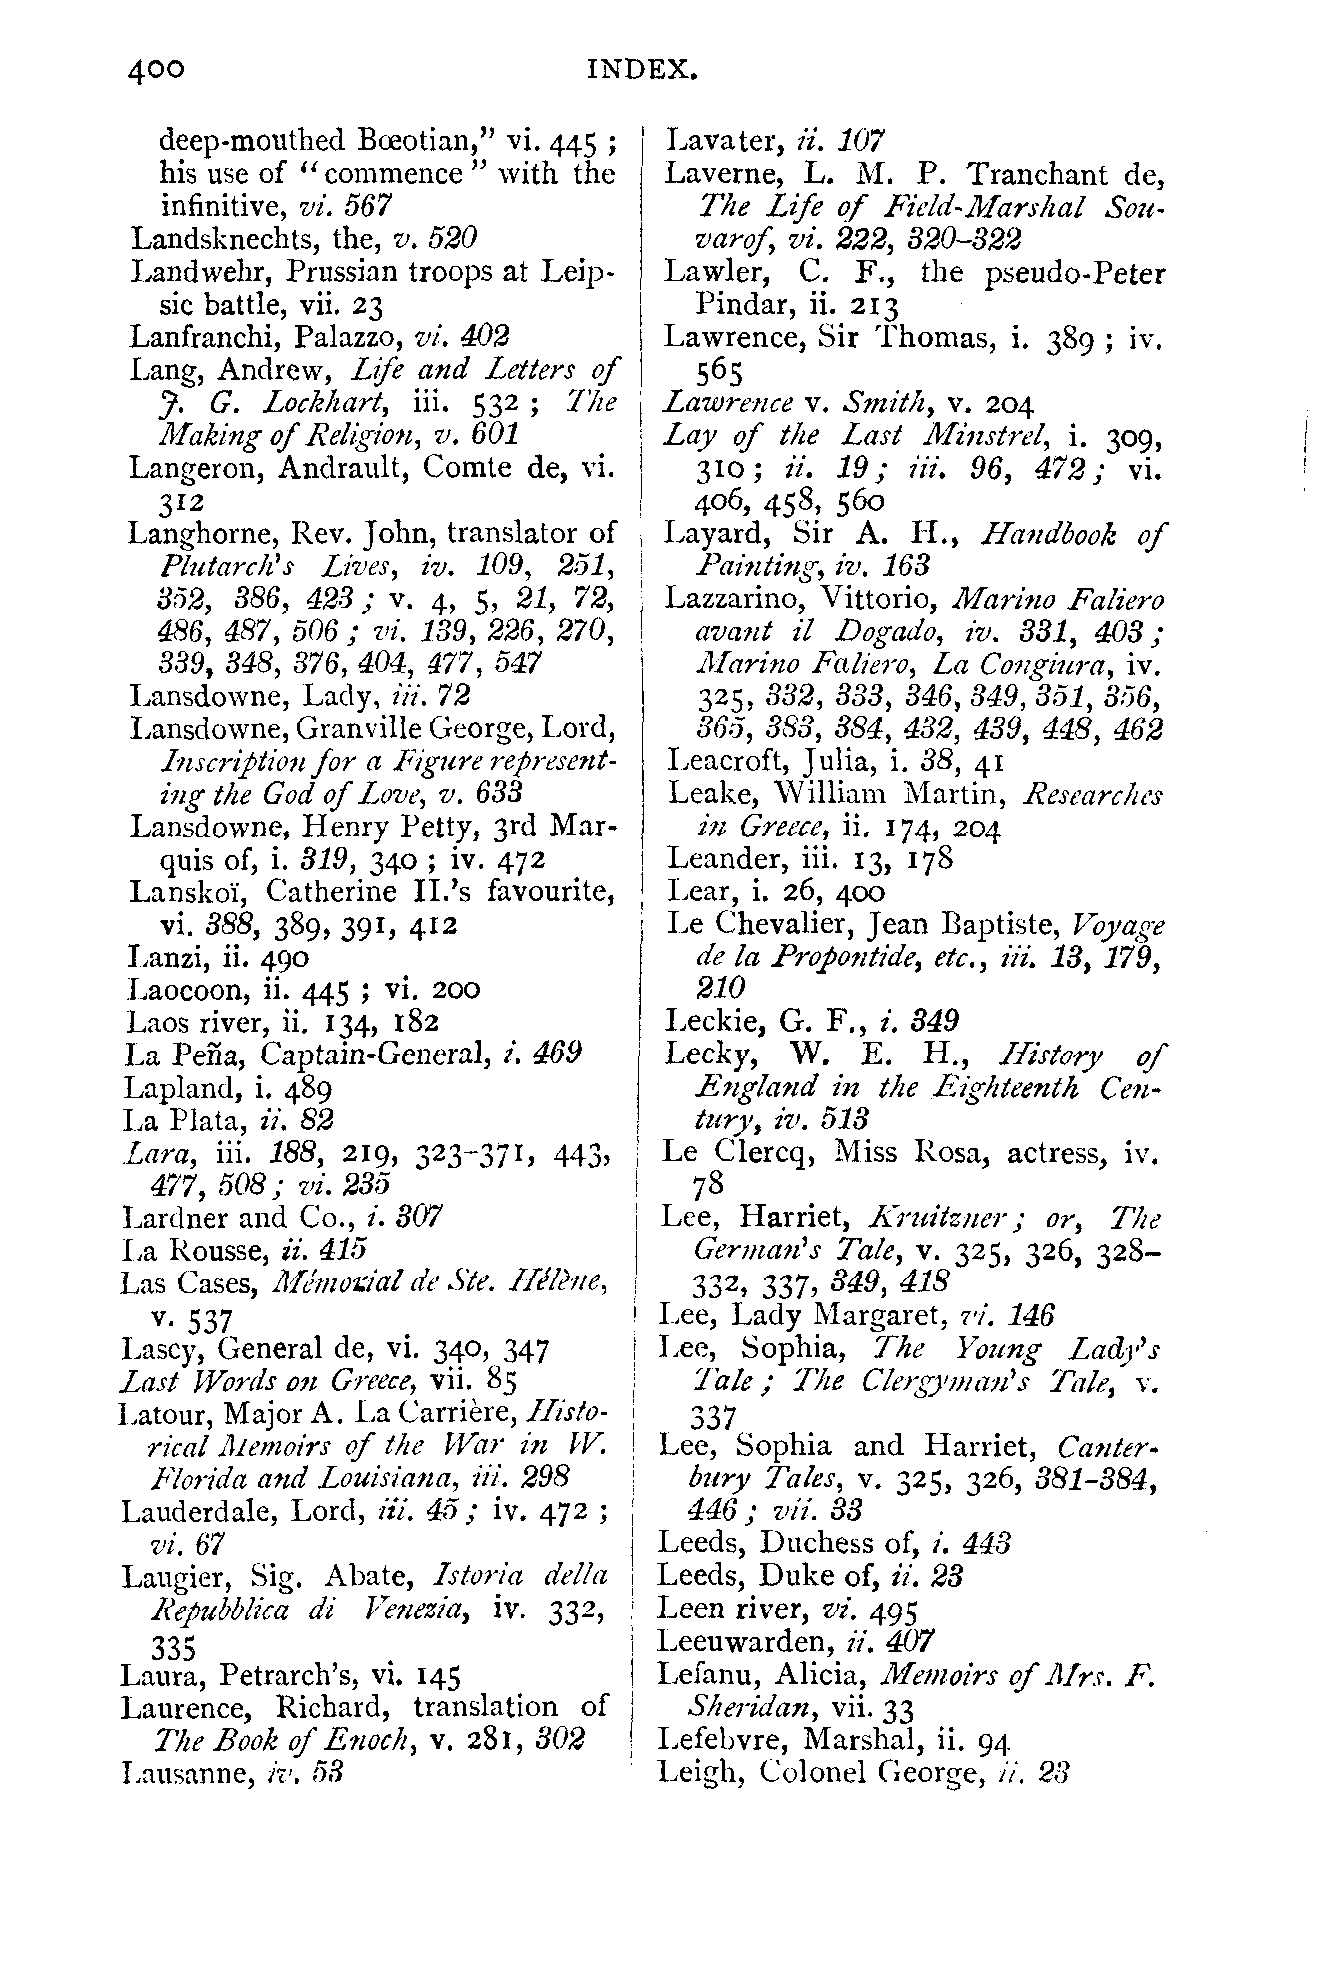 400 INDEX.
deep-mouthed Bœotian," vi. 445 ;
his use of "commence" with the
infinitive, vi. 567
Landsknechts, the, v. 520
Landwehr, Prussian troops at Leip-
sic battle, vii. 23
Lanfranchi, Palazzo, vi. 402
Lang, Andrew, Life and Letters of
J. G. Lockhart, iii. 532 ; The
Making of Religion, v. 601
Langeron, Andrault, Comte de, vi.
312
Langhorne, Rev. John, translator of
Plutarch's Lives, iv. 109, 251,
352, 386, 423 ; v. 4, 5, 21, 72,
486, 487, 506 ; vi. 139, 226, 270,
339, 348, 376, 404, 477, 547
Lansdowne, Lady, iii. 72
Lansdowne, Granville George, Lord,
Inscription for a Figure represent-
ing the God of Love, v. 633
Lansdowne, Henry Petty, 3rd Mar-
quis of, i. 319, 340 ; iv. 472
Lanskoï, Catherine II.'s favourite,
vi. 388, 389, 391, 412
Lanzi, ii. 490
Laocoon, ii. 445 ; vi. 200
Laos river, ii. 134, 182
La Peña, Captain-General, i. 469
Lapland, i. 489
La Plata, ii. 82
Lara, iii. 188, 219, 323-371, 443,
477, 508 ; vi. 235
Lardner and Co., i. 307
La Rousse, ii. 415
Las Cases, Mémorial de Ste. Hélène,
v. 537
Lascy, General de, vi. 340, 347
Last Words on Greece, vii. 85
Latour, Major A. La Carrière, Histo-
rical Memoirs of the War in W.
Florida and Louisiana, iii. 298
Lauderdale, Lord, iii. 45 ; iv. 472 ;
vi. 67
Laugier, Sig. Abate, Istoria della
Repubblica di Venezia, iv. 332,
335
Laura, Petrarch's, vi. 145
Laurence, Richard, translation of
The Book of Enoch, v. 281, 302
Lausanne, iv. 53
Lavater, ii. 107
Laverne, L. M. P. Tranchant de,
The Life of Field-Marshal Sou-
varof, vi. 222, 320-322
Lawler, C. F., the pseudo-Peter
Pindar, ii. 213
Lawrence, Sir Thomas, i. 389 ; iv.
565
Lawrence v. Smith, v. 204
Lay of the Last Minstrel, i. 309,
310 ; ii. 19 ; iii. 96, 472 ; vi.
406, 458, 560
Layard, Sir A. H., Handbook of
Painting, iv. 163
Lazzarino, Vittorio, Marino Faliero
avant il Dogado, iv. 331, 403 ;
Marino Faliero, La Congiura, iv.
325, 332, 333, 346, 349, 351, 356,
365, 383, 384, 432, 439, 448, 462
Leacroft, Julia, i. 38, 41
Leake, William Martin, Researches
in Greece, ii. 174, 204
Leander, iii. 13, 178
Lear, i. 26, 400
Le Chevalier, Jean Baptiste, Voyage
de la Propontide, etc., iii. 13, 179,
210
Leckie, G. F., i. 349
Lecky, W. E. H., History of
England in the Eighteenth Cen-
tury, iv. 513
Le Clercq, Miss Rosa, actress, iv.
78
Lee, Harriet, Kruitzner ; or, The
German's Tale, v. 325, 326, 328-
332, 337, 349, 418
Lee, Lady Margaret, vi. 146
Lee, Sophia, The Young Lady's
Tale ; The Clergyman's Tale, v.
337
Lee, Sophia and Harriet, Canter-
bury Tales, v. 325, 326, 381-384,
446 ; vii. 33
Leeds, Duchess of, i. 443
Leeds, Duke of, ii. 23
Leen river, vi. 495
Leeuwarden, ii. 407
Lefanu, Alicia, Memoirs of Mrs. F.
Sheridan, vii. 33
Lefebvre, Marshal, ii. 94
Leigh, Colonel George, ii. 23